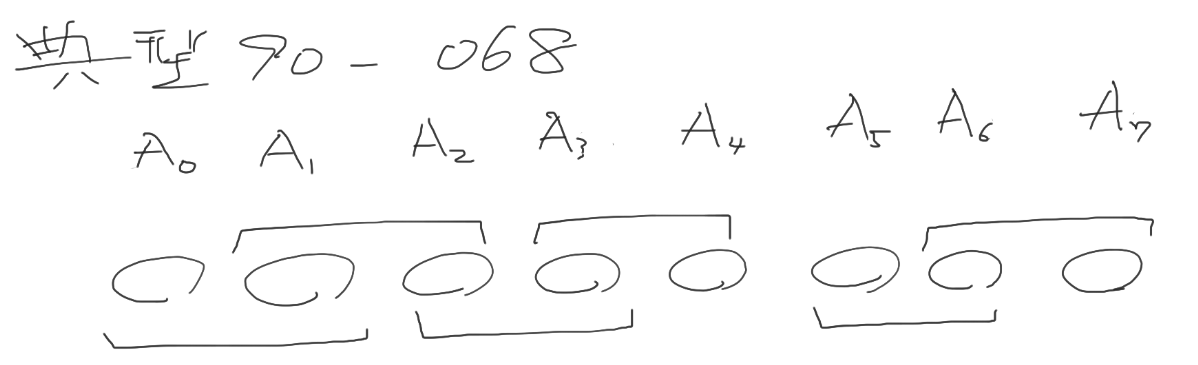 典型90-068
A0 A1 A2 A3 A4 A5 A6 A7